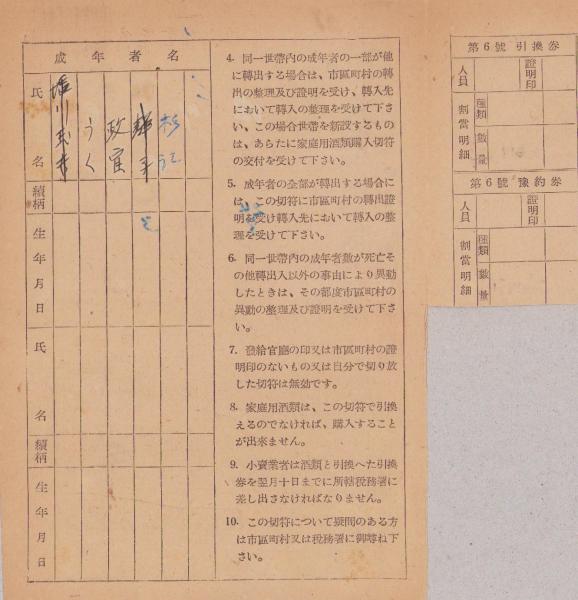 成年者名
氏名
うく
政官
杉江
續柄
生年月日
氏名
續柄
生年月日
4. 同一世帶内の成年者の一部が他
に轉出する場合は、市區町村の轉
出の整理及び證明を受け、轉入先
において轉入の整理を受けて下さ
い、この場合世帶を新設するもの
は、あらたに家庭用酒類購入切符
の交付を受けて下さい。
5. 成年者の全部が轉出する場合に
は、この切符に市區町村の轉出證
明を受け轉入先において轉入の整
理を受けて下さい。
6. 同一世帶内の成年者數が死亡そ
の他轉出入以外の事由により異動
したときは、その都度市區町村の
異動の整理及び證明を受けて下さ
い。
7. 發給官廳の印又は市區町村の證
明印のないもの又は自分で切り放
した切符は無効です。
8. 家庭用酒類は、この切符で引換
えるのでなければ、購入すること
が出來ません。
9. 小賣業者は酒類と引換へた引換
券を翌月十日までに所轄税務署に
差し出さなければなりません。
10. この切符について疑問のある方
は市區町村又は税務署に御尋ね下
さい。
第6號引換券
人員
證明印
割當明細
種類
數量
第6號豫約券
人員
證明印
割當明細
種類
數量